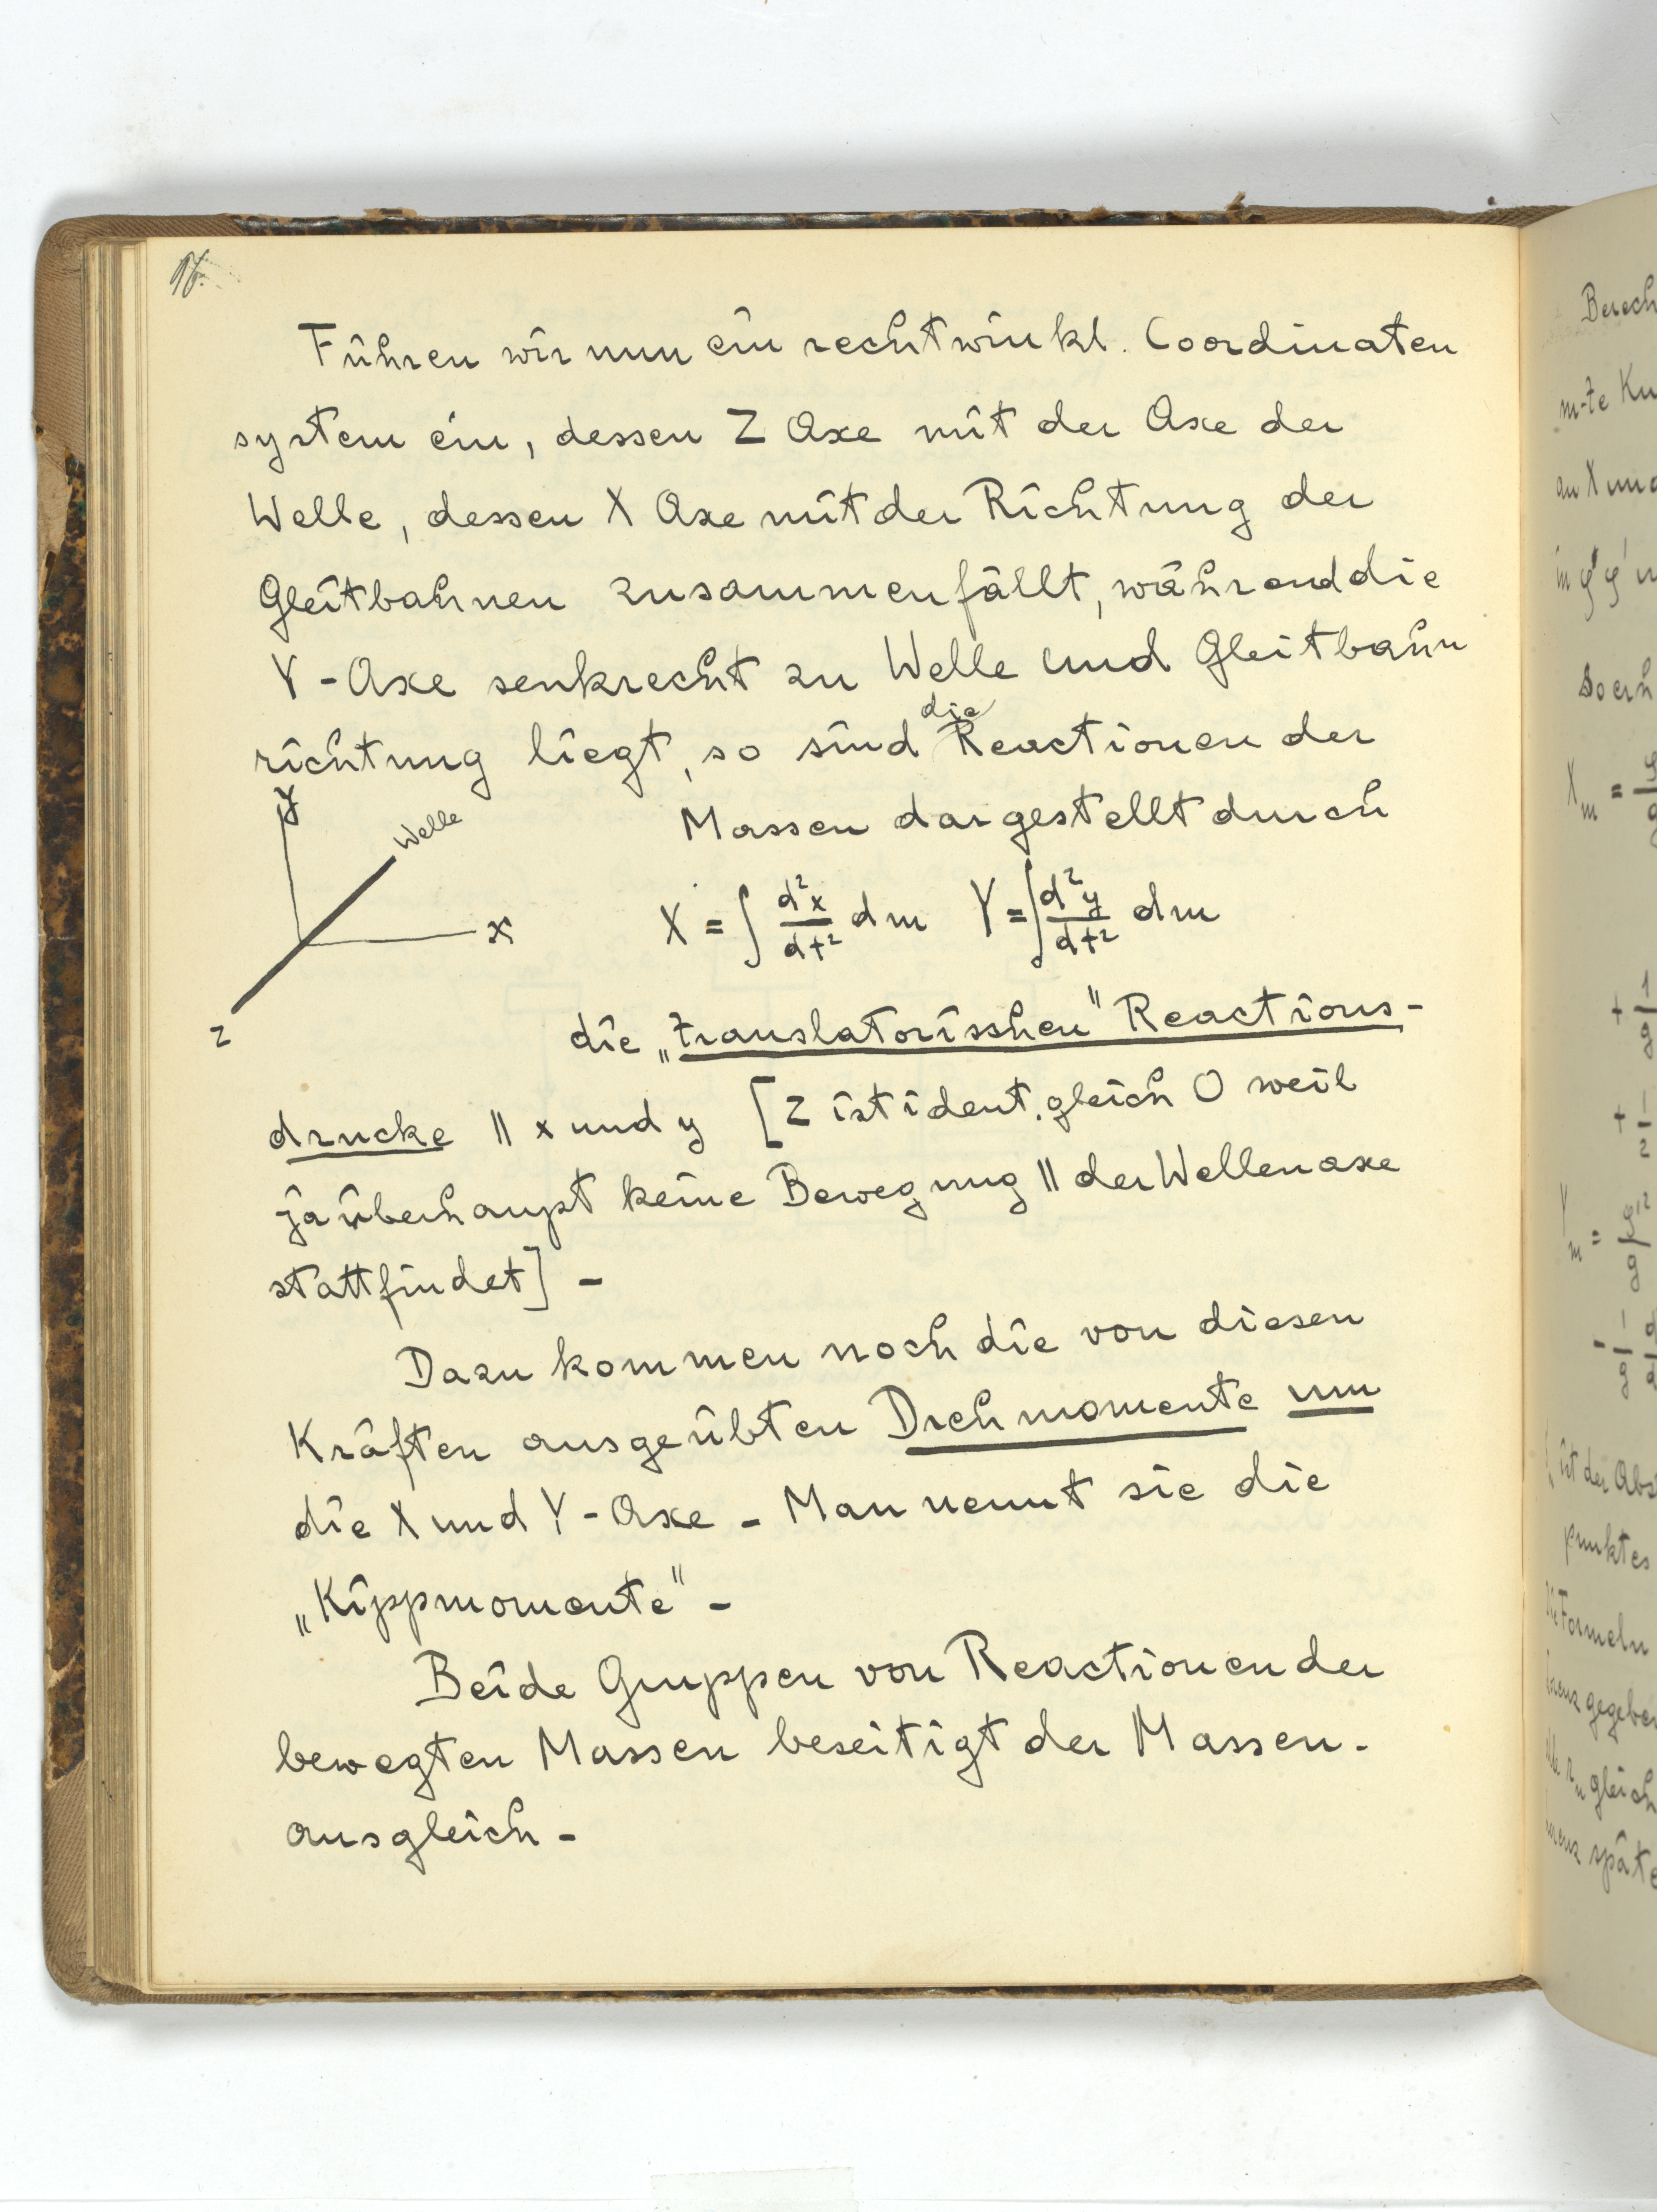 16.
Führen wir nun ein rechtwinkl. Coordinaten
system ein, dessen Z Axe mit der Axe der
Welle, dessen X Axe mit der Richtung der
Gleitbahnen zusammenfällt, während die
Y-Axe senkrecht zu Welle und Gleitbahn
richtung liegt, so sind die Reactionen der
Massen dargestellt durch
y
Welle
x
z
X = ∫ d²x/dt² dm Y = ∫ d²y/dt² dm
die „translatorisshen" Reactions-
drucke || x und y [Z ist ident. gleich 0 weil
ja überhaupt keine Bewegung || der Wellenaxe
stattfindet] -
Dazu kommen noch die von diesen
Kräften ausgeübten Drehmomente um
die X und Y-Axe - Man nennt sie die
„Kippmomente" -
Beide Gruppen von Reactionen der
bewegten Massen beseitigt der Massen-
ausgleich -
Berech
m-te Ku
an X und
Soerh
X m =
+ 1
g
+ 1
2
Y m =
ist der Abs
punktes
Die Formeln
gegeben
gleich
späte